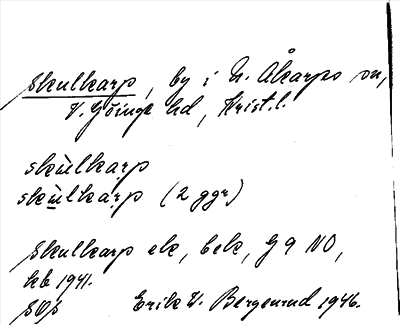 Skulkarp, by i N. Åkarps sn,
V. Göinge hd, Krist. l.
skùlkarp
skùlkarp (2 ggr)
Skulkarp ek, bek, G 9 NO,
kb 1941.
SOS Erik V. Bergenrud 1946.